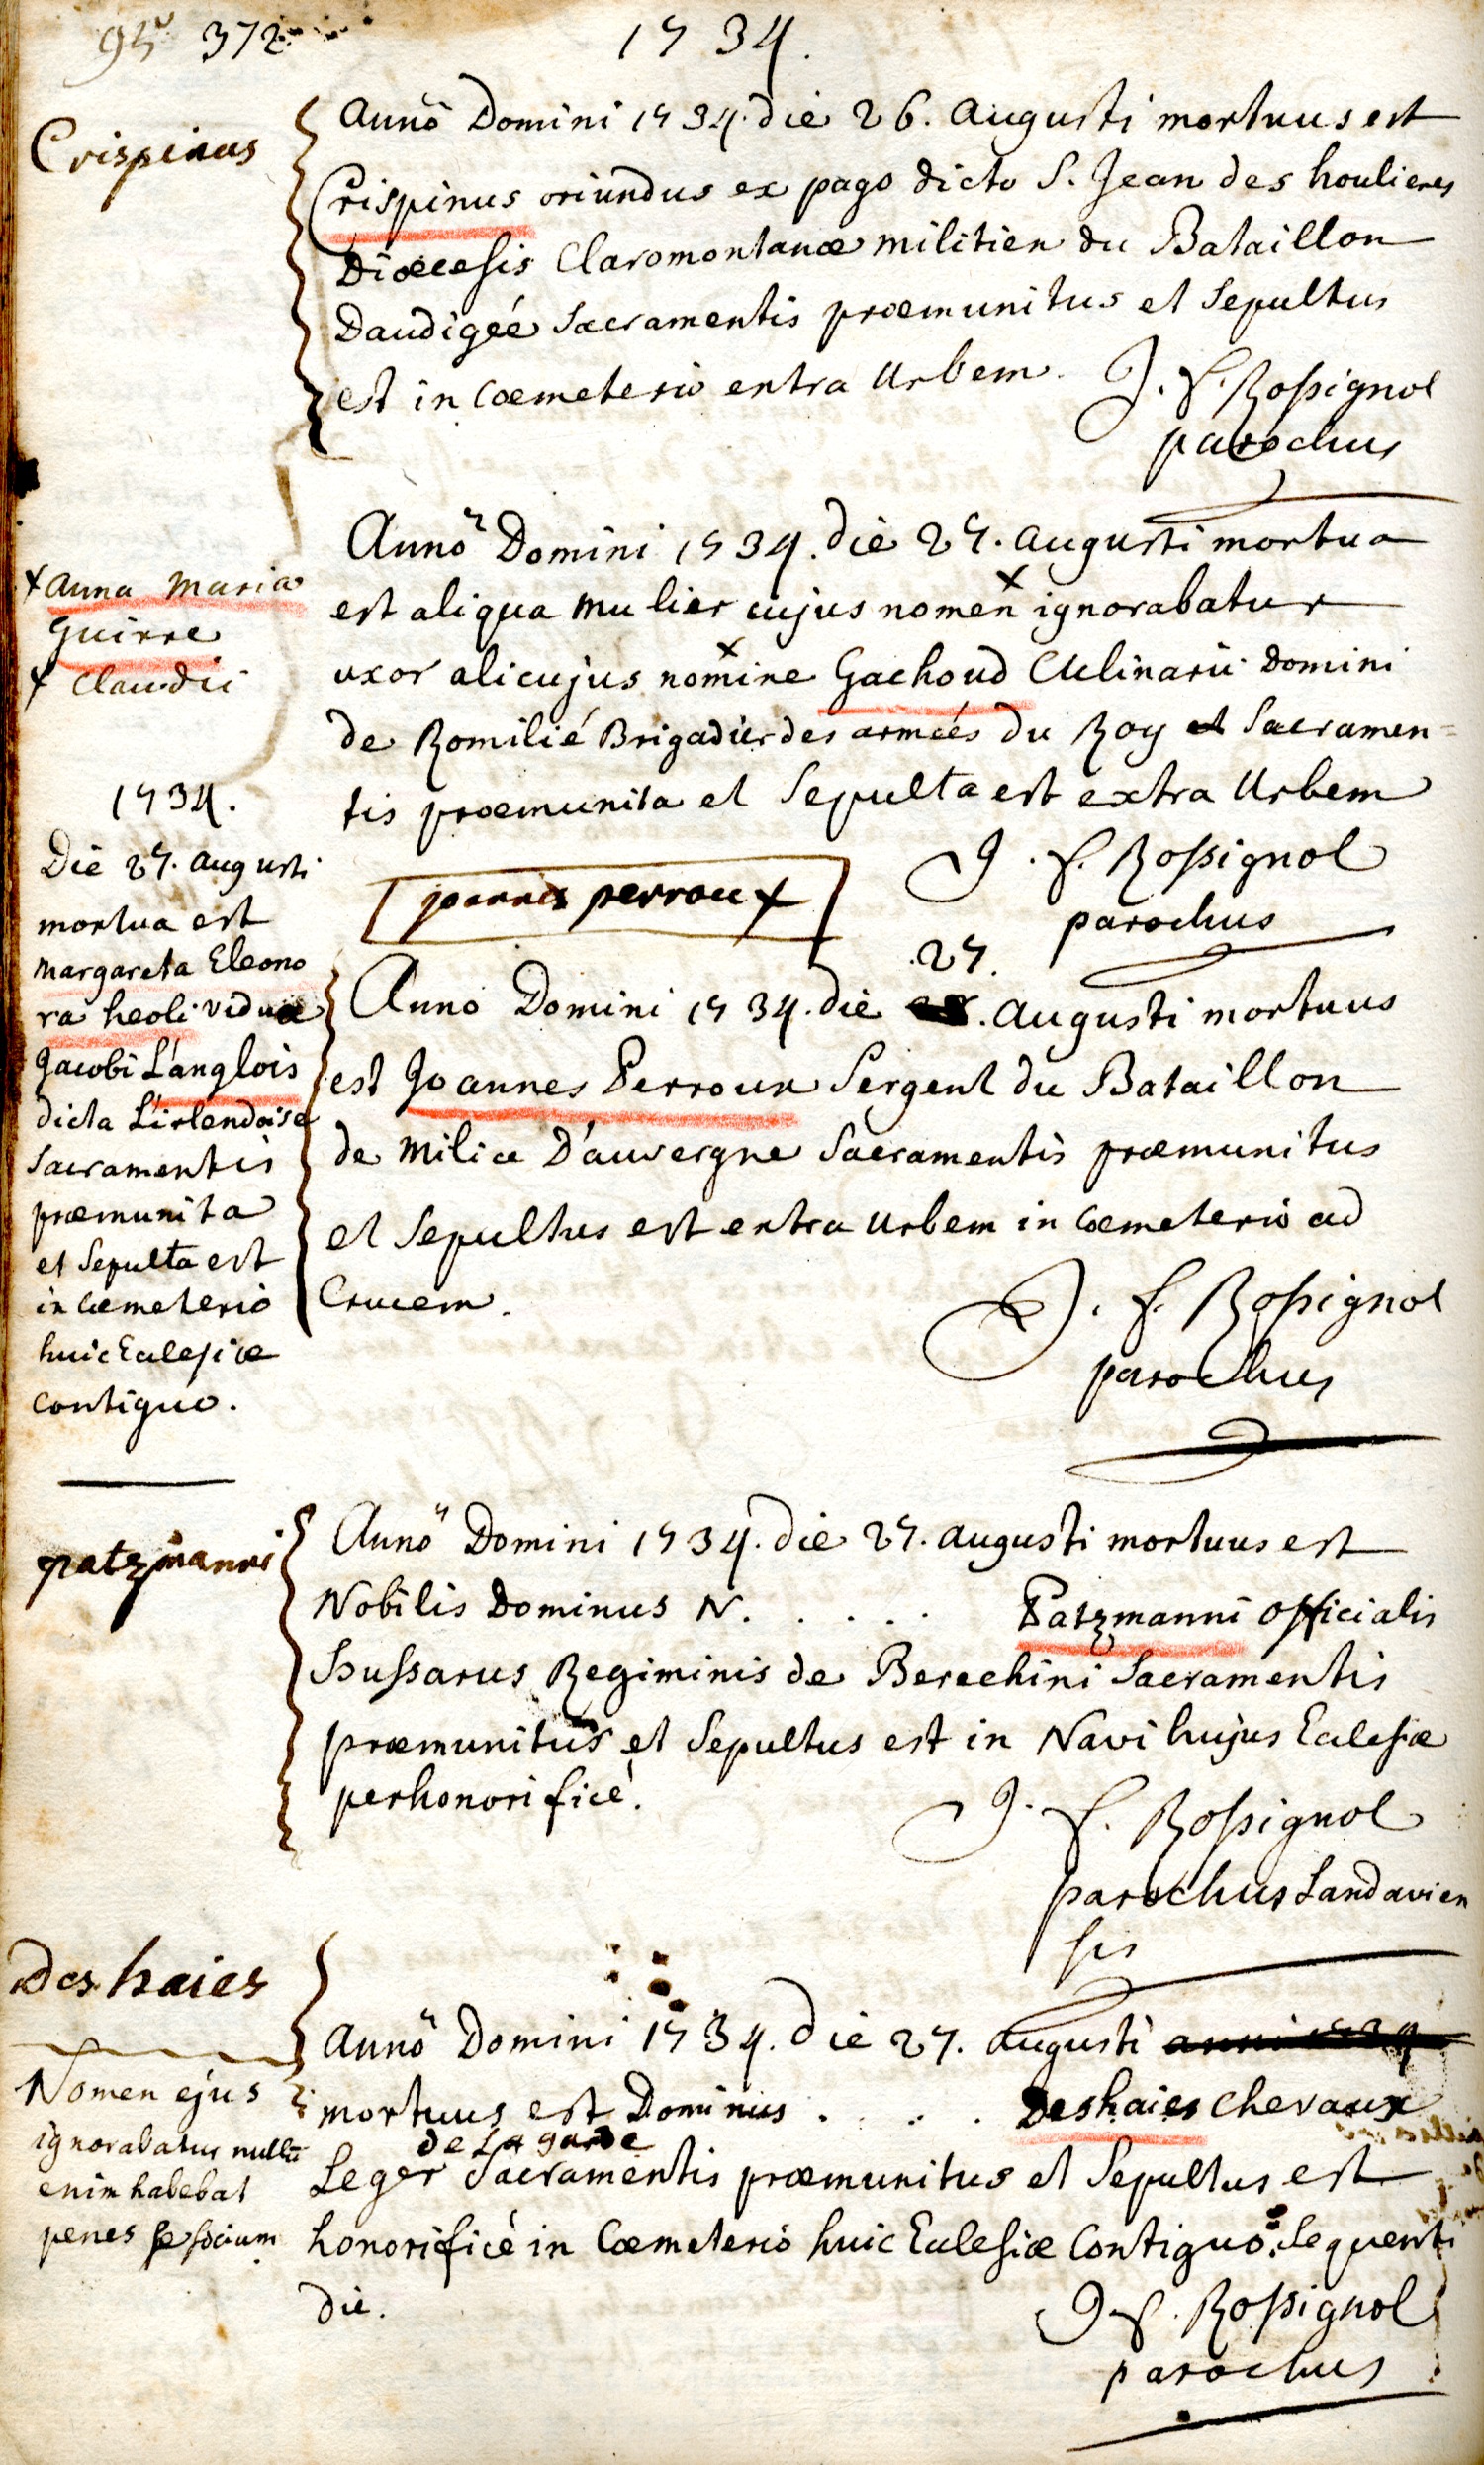 95 372
1734.
Crispinus
Annô Domini 1734. die 26. Augusti mortuus est
Crispinus oriundus ex pago dicto S. Jean des houlieres
Dioecesis Claromontanæ militien du Bataillon
Daudigée Sacramentis præmunitus et Sepultus
est in Coemeterio extra Urbem.
J. f. Roßignol
parochus
Annô Domini 1734. die 27. Augusti mortua
est aliqua mulier cujus nomen x ignorabatur
uxor alicujus nomine x Gachoud Culinarii Domini
de Romilié Brigadier des armées du Roy et Sacramen=
tis præmunita et Sepulta est extra Urbem
J. f. Roßignol
parochus
x Anna Maria
Guirre
x Claudii
1734.
Die 27. augusti
mortua est
Margareta Eleono
ra heoli vidua
Jacobi L'anglois
dicta L'irlendoise
Sacramentis
præmunita
et Sepulta est
in Coemeterio
huic Eclesiæ
contiguo.
joannes perroux
Anno Domini 1734. die 27. Augusti mortuus
est Joannes Perroux Sergent du Bataillon
de Milice D'auvergne Sacramentis præmunitus
et Sepultus est extra urbem in Coemeterio ad
Crucem.
J. f. Roßignol
parochus
patzmanni
Annô Domini 1734. die 27. augusti mortuus est
Nobilis Dominus N. . . . . Patzmanni officialis
Hussarus Regiminis de Berechini Sacramentis
præmunitus et Sepultus est in Navi hujus Eclesiæ
perhonorificè.
J. f. Roßignol
parochus Landavien
sis
Des haies
Nomen ejus
ignorabatur nullū
enim habebat
penes se socium
Annô Domini 1734. die 27. Augusti anni 1734
mortuus est Dominus . . . . Deshaies Chevaux
Leger de La garde Sacramentis præmunitus et Sepultus est
honorificè in Coemeterio huic Eclesiæ Contiguo Sequenti
die.
J. f. Roßignol
parochus